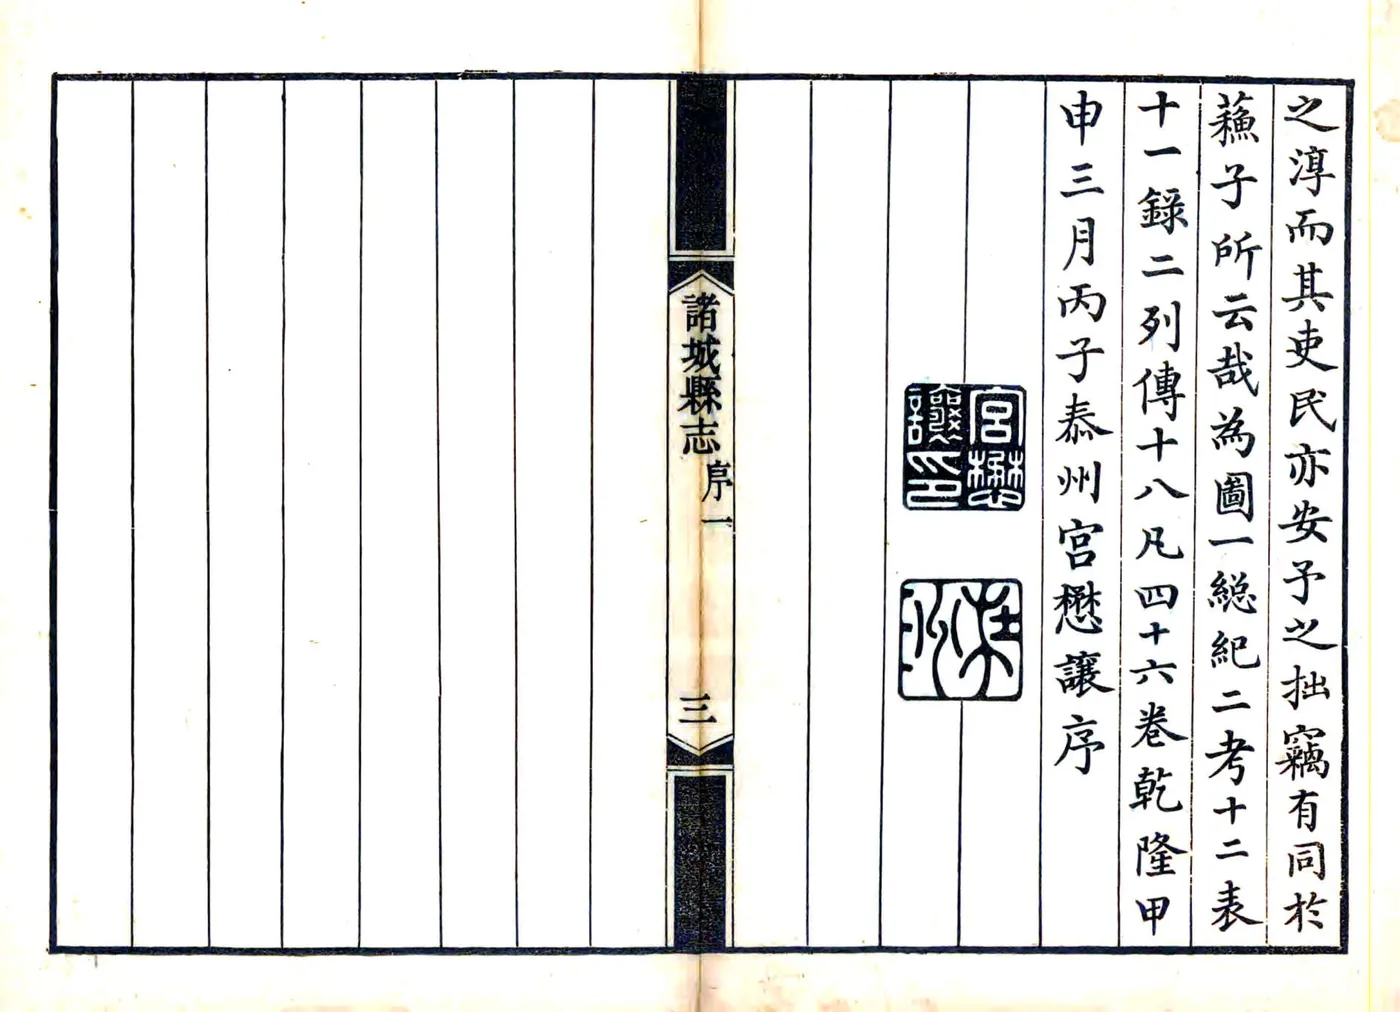 之淳而其吏民亦安予之拙竊有同於
蘓子所云哉為圖一總紀二考十二表
十一錄二列傳十八凡四十六卷乾隆甲
申三月丙子泰州宮懋讓序
宮懋
讓印
諸城縣志
序一
三